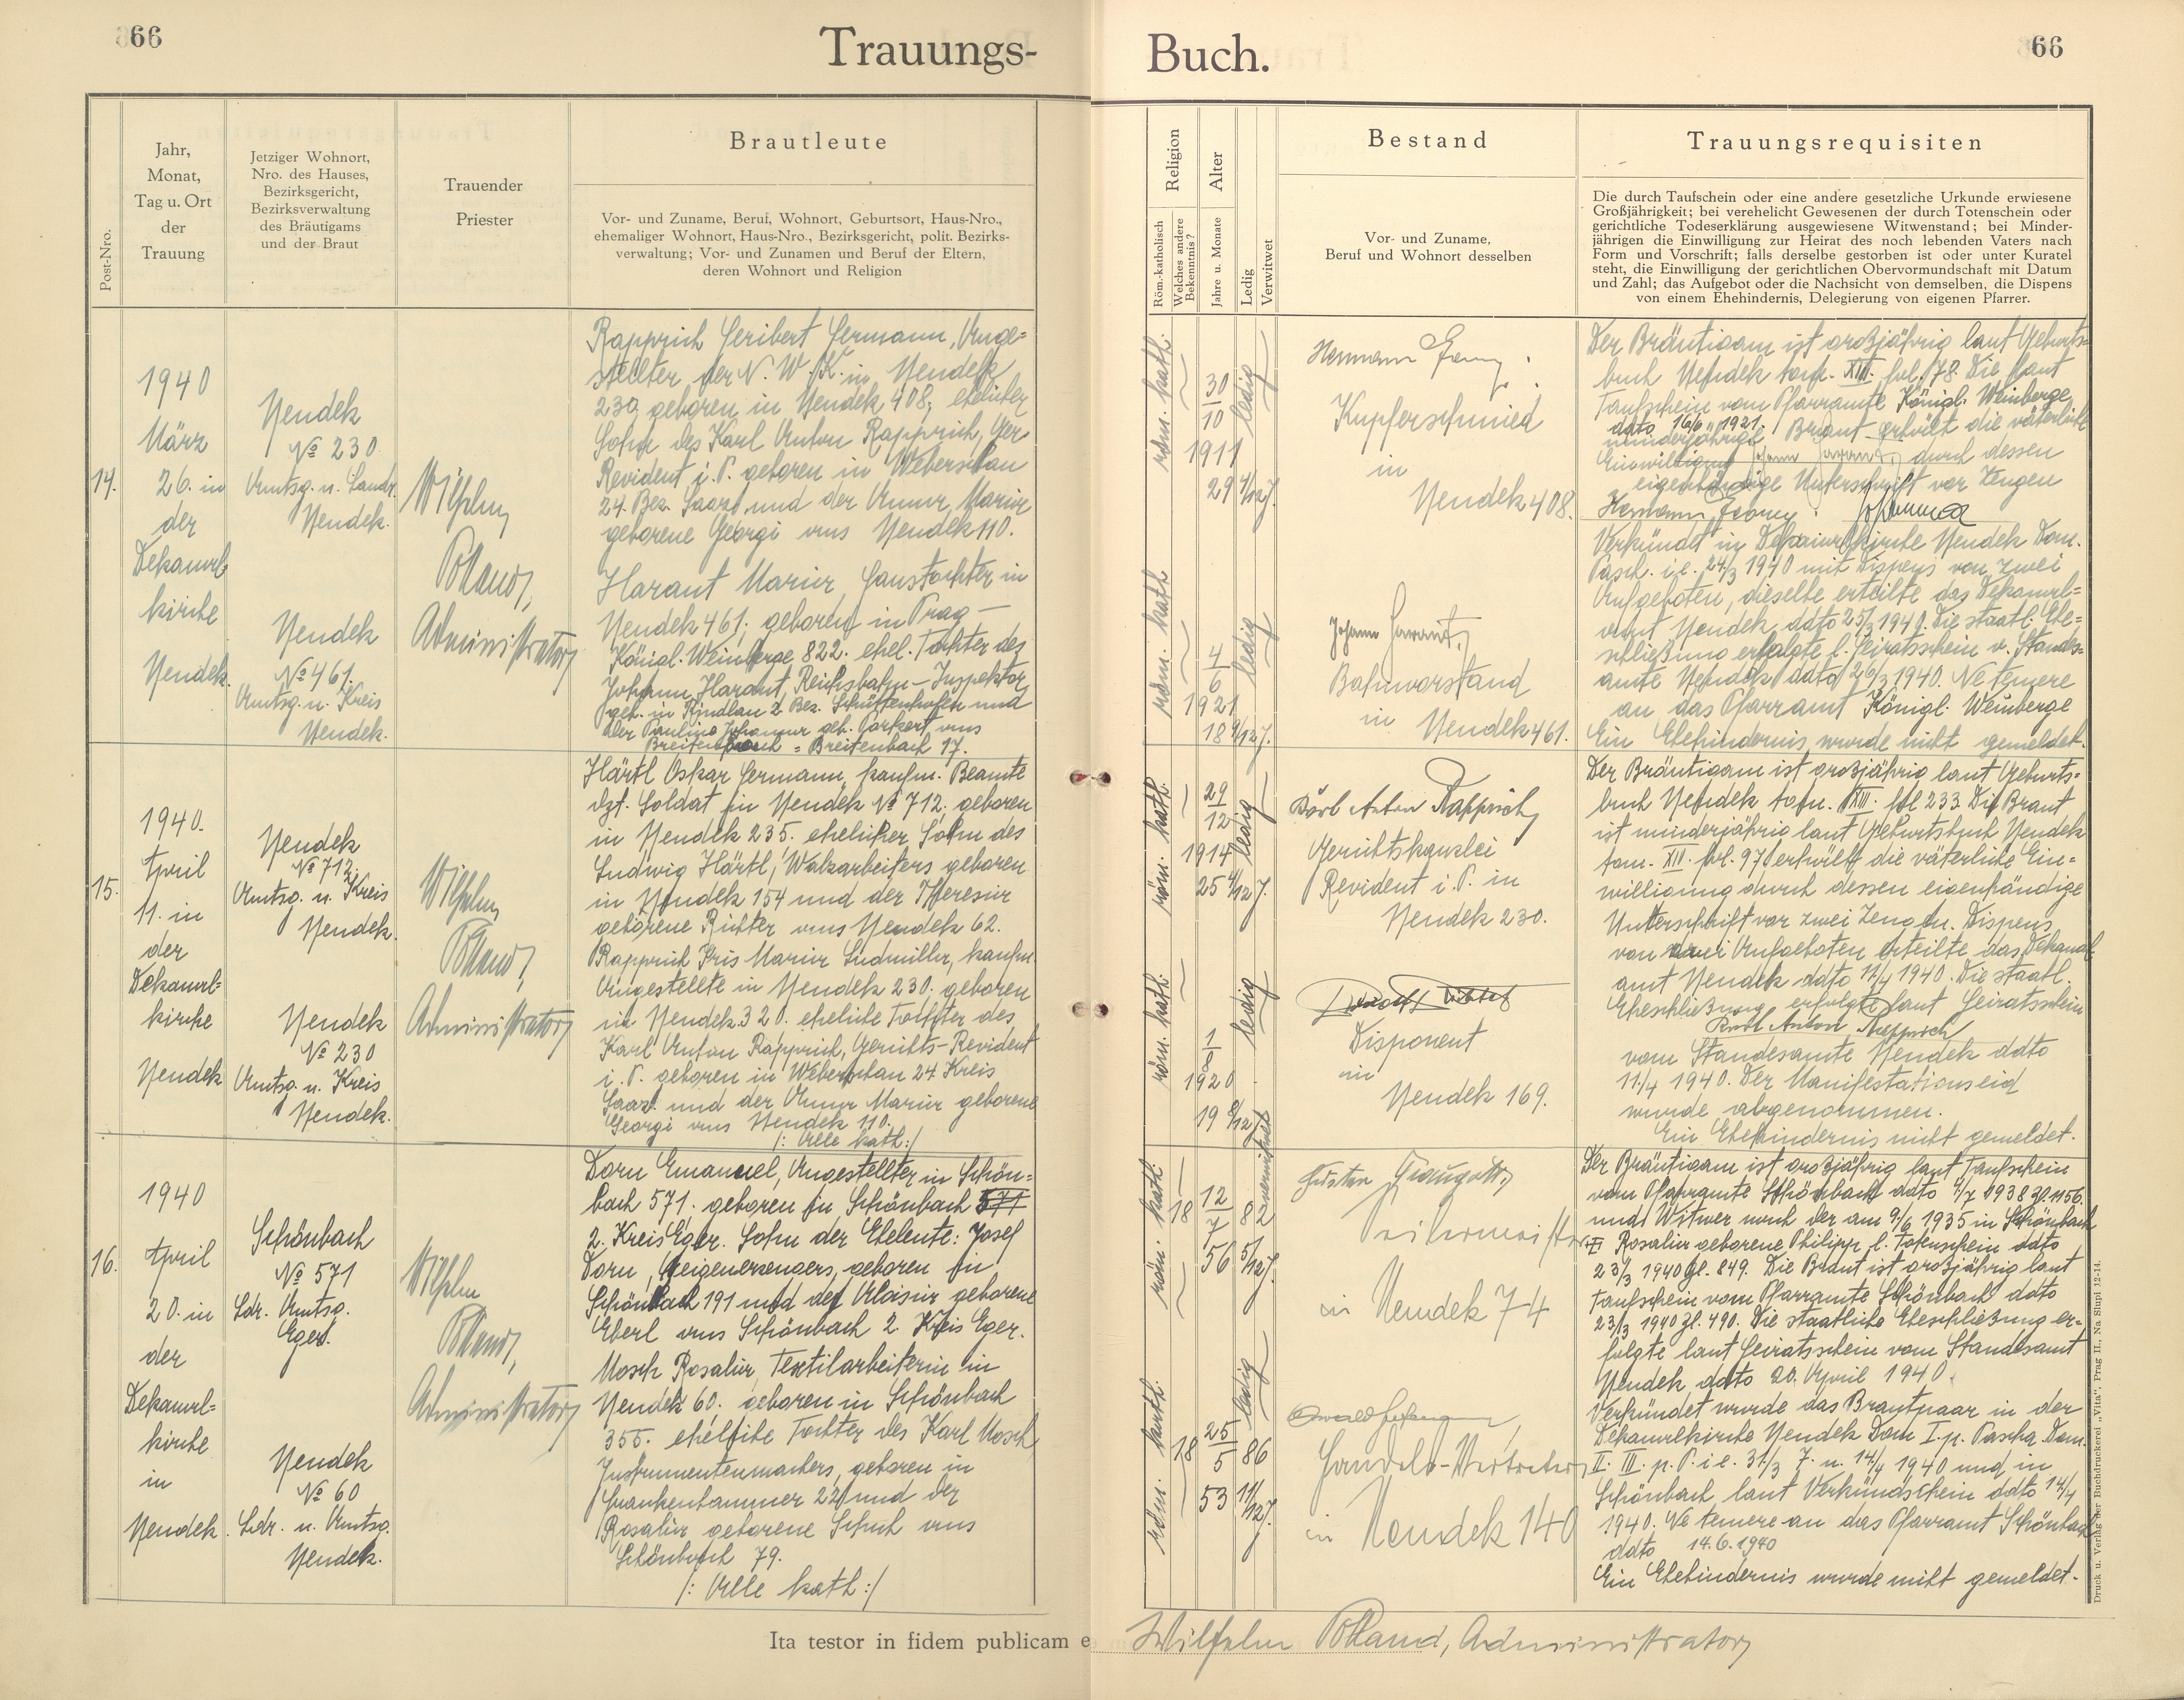 66
Trauungs-
Buch.
66
Post-Nro.
Jahr,
Monat,
Tag u. Ort
der
Trauung
Jetziger Wohnort,
Nro. des Hauses,
Bezirksgericht,
Bezirksverwaltung
des Bräutigams
und der Braut
Trauender
Priester
Brautleute
Vor- und Zuname, Beruf, Wohnort, Geburtsort, Haus-Nro.,
ehemaliger Wohnort, Haus-Nro., Bezirksgericht, polit. Bezirks-
verwaltung; Vor- und Zunamen und Beruf der Eltern,
deren Wohnort und Religion
Religion
Röm.-katholisch
Welches andere
Bekenntnis?
Alter
Jahre u. Monate
Ledig
Verwitwet
Bestand
Vor- und Zuname,
Beruf und Wohnort desselben
Trauungsrequisiten
Die durch Taufschein oder eine andere gesetzliche Urkunde erwiesene
Großjährigkeit; bei verehelicht Gewesenen der durch Totenschein oder
gerichtliche Todeserklärung ausgewiesene Witwenstand; bei Minder-
jährigen die Einwilligung zur Heirat des noch lebenden Vaters nach
Form und Vorschrift; falls derselbe gestorben ist oder unter Kuratel
steht, die Einwilligung der gerichtlichen Obervormundschaft mit Datum
und Zahl; das Aufgebot oder die Nachsicht von demselben, die Dispens
von einem Ehehindernis, Delegierung von eigenen Pfarrer.
14.
1940
März
26. in
der
Dekanal
kirche
Neudek.
Neudek
No 230
Amtsg. u. Landr.
Neudek.
Neudek
No 461.
Amtsg. u. Kreis
Neudek.
Wilhelm
Pölland,
Administrator
Rapprich Heribert Hermann, Ange=
stellter der N. W. K. in Neudek
230, geboren in Neudek 408, ehelicher
Sohn des Karl Anton Rapprich, Ger.
Revident i. P. geboren in Weberschan
24. Bez. Saaz und der Anna Maria
geborene Georgi aus Neudek 110.
Harant Maria, Haustochter in
Neudek 461, geboren in Prag —
Königl. Weinberge 822. ehel. Tochter des
Johann Harant, Reichsbahn-Inspektor
geb. in Kindlau 2 Bez. Schüttenhofen und
der Paulina Johanna geb. aus
Breitenbach 17.
röm. kath.
30
10
1911
29 4/12 J.
ledig
röm. kath.
4
6
1921
18 9/12 J.
ledig
Hermann
Kupferschmied
in
Neudek 408.
Johann Harant,
Bahnvorstand
in Neudek 461.
Der Bräutigam ist großjährig laut Geburts=
buch Neudek tom. XIII. fol. 78. Die laut
Taufschein vom Pfarramte Königl. Weinberge
dato 16/6 1921.
minderjährige Braut erhält die väterliche
Einwilligung Johann Harant, durch dessen
eigenhändige Unterschrift vor Zeugen
Hermann
Verkündet in Dekanalkirche Neudek Dom.
Pasch. i. e. 24/3 1940 mit Dispens von zwei
Aufgeboten, dieselbe erteilte das Dekanal=
amt Neudek ddto 25/3 1940. Die staatl. Ehe=
schließung erfolgte l. Heiratsschein v. Standes=
amte Neudek ddto 26/3 1940. Ne temere
an das Pfarramt Königl. Weinberge
Ein Ehehindernis wurde nicht gemeldet.
15.
1940.
April
11. in
der
Dekanal=
kirche
Neudek
Neudek
No 712.
Amtsg. u. Kreis
Neudek.
Neudek
No 230
Amtsg. u. Kreis
Neudek.
Wilhelm
Pölland,
Administrator
Härtl Oskar Hermann, kaufm. Beamte
dzt. Soldat in Neudek No 712. geboren
in Neudek 235. ehelicher Sohn des
Ludwig Härtl, Walzarbeiters geboren
in Neudek 154 und der Theresia
geborene Richter aus Neudek 62.
Rapprich Iris Maria Ludmilla, kaufm.
Angestellte in Neudek 230. geboren
in Neudek 320. eheliche Tochter des
Karl Anton Rapprich, Gerichts-Revident
i. P. geboren in Weberschan 24 Kreis
Saaz und der Anna Maria geborene
Georgi aus Neudek 110.
/: Alle kath :/
röm. kath.
29
12
1914
25 4/12 J.
ledig
röm. kath.
1
8
1920
19 8/12 J.
ledig
Karl Anton Rapprich
Gerichtskanzlei
Revident i. P. in
Neudek 230.
Disponent
in
Neudek 169.
Der Bräutigam ist großjährig laut Geburts=
buch Neudek tom. XIII. fol 233. Die Braut
ist minderjährig laut Geburtsbuch Neudek
tom. XII. fol. 97, erhält die väterliche Ein=
willigung durch dessen eigenhändige
Unterschrift vor zwei Zeugen. Dispens
von Aufgeboten erteilte das Dekanal
amt Neudek ddto 11/4 1940. Die staatl.
Eheschließung erfolgte laut Heiratsschein
Karl Anton Rapprich
vom Standesamte Neudek ddto
11./4 1940. Der Manifestationseid
wurde abgenommen.
Ein Ehehindernis nicht gemeldet.
16.
1940
April
20. in
der
Dekanal=
kirche
in
Neudek.
Schönbach
No 571
Ldr. Amtsg.
Eger.
Neudek
No 60
Ldr. u. Amtsg.
Neudek.
Wilhelm
Pölland,
Administrator
Dorn Emanuel, Angestellter in Schön=
bach 571. geboren in Schönbach 571
2. Kreis Eger. Sohn der Eheleute: Josef
Dorn, Geigenerzeugers, geboren in
Schönbach 191 und der Aloisia geborene
Eberl aus Schönbach 2. Kreis Eger.
Mosch Rosalia, Textilarbeiterin in
Neudek 60. geboren in Schönbach
355. eheliche Tochter des Karl Mosch,
Instrumentenmachers, geboren in
Frankenhammer 22 und der
Rosalia geborene Schuh aus
Schönbach 79.
/: Alle kath :/
röm. kath.
12
7
1882
56 5/12 J.
verwitwet
röm. kath.
25
5
1886
53 11/12 J.
ledig
Gustav
in Neudek 74
Handels-Vertreter
in Neudek 140
Der Bräutigam ist großjährig laut Taufschein
vom Pfarramte Schönbach ddto 4/7 1938 Zl. 1156.
und Witwer nach der am 9./6 1935 in Schönbach
Rosalia geborene Philipp l. Totenschein ddto
23/3 1940 Zl. 849. Die Braut ist großjährig laut
Taufschein vom Pfarramte Schönbach ddto
23/3 1940 Zl. 490. Die staatliche Eheschließung er=
folgte laut Heiratsschein vom Standesamt
Neudek, ddto 20. April 1940.
Verkündet wurde das Brautpaar in der
Dekanalkirche Neudek Dom I. p. Pascha. Dom.
II. III. p. P. i. e. 31/3 7. u. 14/4 1940 und in
Schönbach laut Verkündschein ddto 14/4
1940. Ne temere an das Pfarramt Schönbach
ddto 14.6.1940
Ein Ehehindernis wurde nicht gemeldet.
Ita testor in fidem publicam e
Wilhelm Pölland, Administrator
Druck u. Verlag der Buchdruckerei „Vita", Prag II., Na Slupi 12-14.